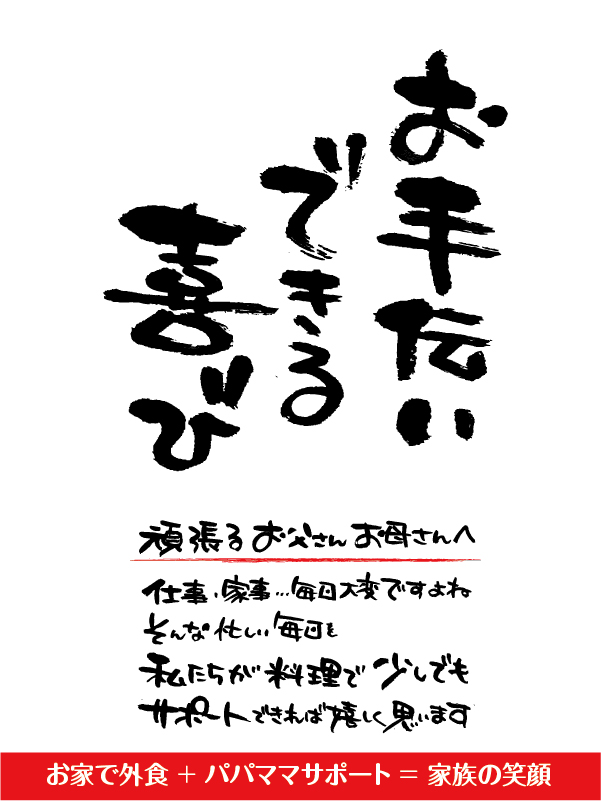 お手伝い
できる
喜び
頑張るお父さんお母さんへ
仕事・家事…毎日大変ですよね
そんな忙しい毎日を
私たちが料理で少しでも
サポートできれば嬉しく思います
お家で外食 + パパママサポート = 家族の笑顔